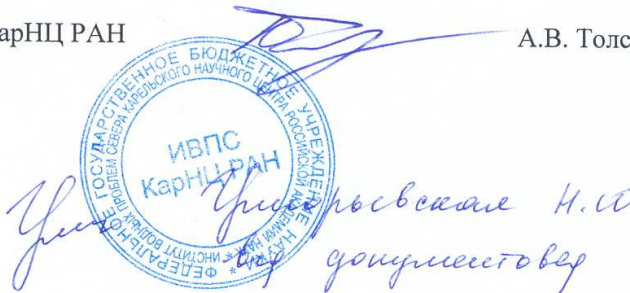 арНЦ РАН
А.В. Толс
ФЕДЕРАЛЬНОЕ ГОСУДАРСТВЕННОЕ БЮДЖЕТНОЕ УЧРЕЖДЕНИЕ НАУКИ
* ИНСТИТУТ ВОДНЫХ ПРОБЛЕМ СЕВЕРА КАРЕЛЬСКОГО НАУЧНОГО ЦЕНТРА РОССИЙСКОЙ АКАДЕМИИ НАУК *
ИВПС
КарНЦ РАН
документовед